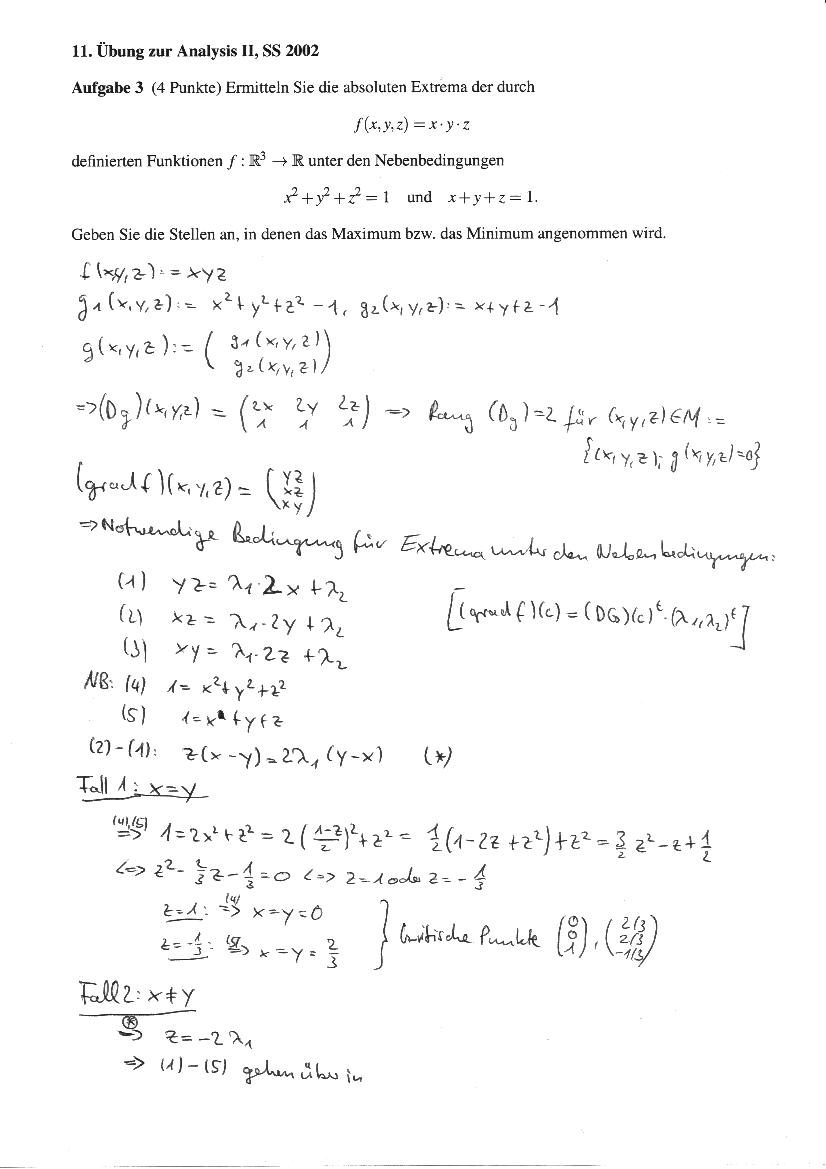 11. Übung zur Analysis II, SS 2002
Aufgabe 3 (4 Punkte) Ermitteln Sie die absoluten Extrema der durch
f(x,y,z) = x·y·z
definierten Funktionen f : ℝ³ → ℝ unter den Nebenbedingungen
x² + y² + z² = 1 und x + y + z = 1.
Geben Sie die Stellen an, in denen das Maximum bzw. das Minimum angenommen wird.
f(x,y,z) := xyz
g₁(x,y,z) := x²+y²+z²-1, g₂(x,y,z) := x+y+z-1
g(x,y,z) := (g₁(x,y,z) g₂(x,y,z))
=> (Dg)(x,y,z) = (2x 2y 2z 1 1 1) => Rang (Dg)=2 für (x,y,z)∈M :=
{(x,y,z); g(x,y,z)=0}
(grad f)(x,y,z) = (yz xz xy)
=> Notwendige Bedingung für Extrema unter den Nebenbedingungen:
(1) yz = λ₁·2x + λ₂
(2) xz = λ₁·2y + λ₂ [(grad f)(c) = (DG)(c)ᵗ·(λ₁,λ₂)ᵗ]
(3) xy = λ₁·2z + λ₂
NB: (4) 1 = x²+y²+z²
(5) 1 = x+y+z
(2)-(1): z(x-y) = 2λ₁(y-x) (*)
Fall 1: x=y
(4),(5) => 1 = 2x²+z² = 2((1-z)/2)²+z² = 1/2(1-2z+z²)+z² = 3/2 z²-z+1/2
<=> z² - 2/3 z - 1/3 = 0 <=> z=1 oder z = -1/3
z=1: (4) => x=y=0
z=-1/3: (5) => x=y=2/3 } kritische Punkte (0 0 1), (2/3 2/3 -1/3)
Fall 2: x≠y
(*) => z = -2λ₁
=> (1)-(5) gehen über in